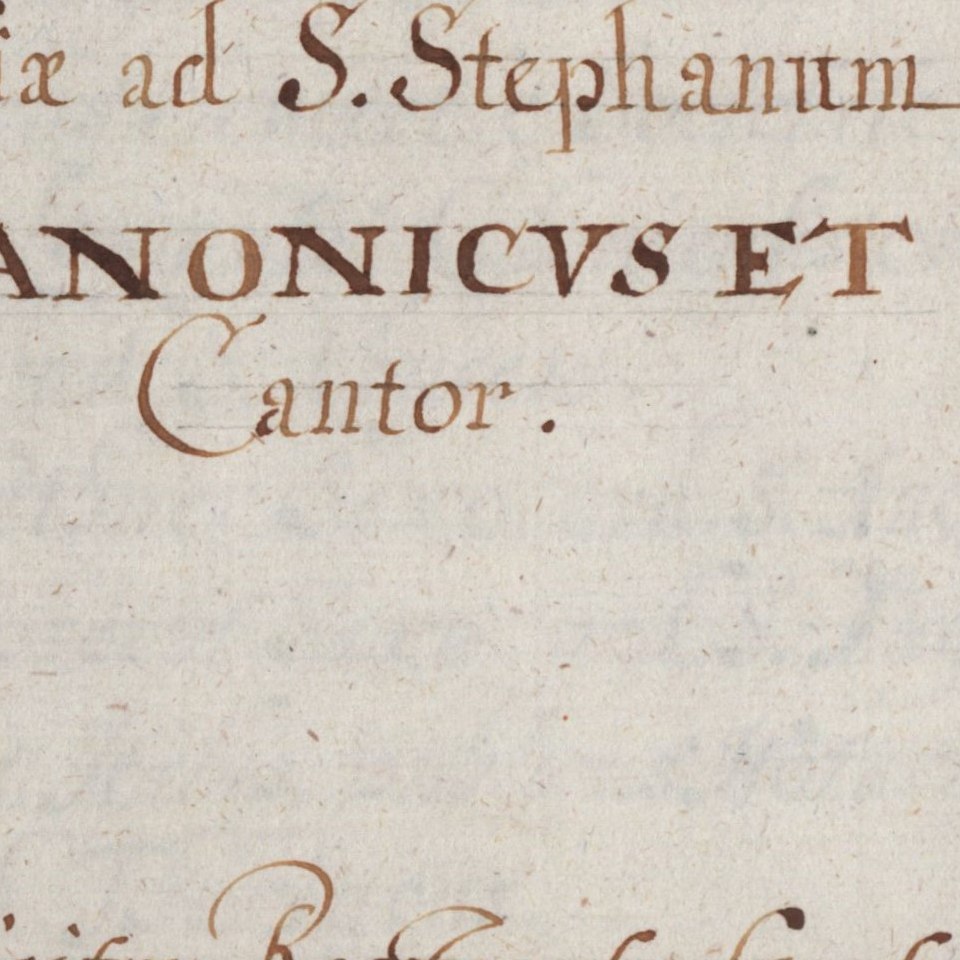 iæ ad S. Stephanum
ANONICVS ET
Cantor.